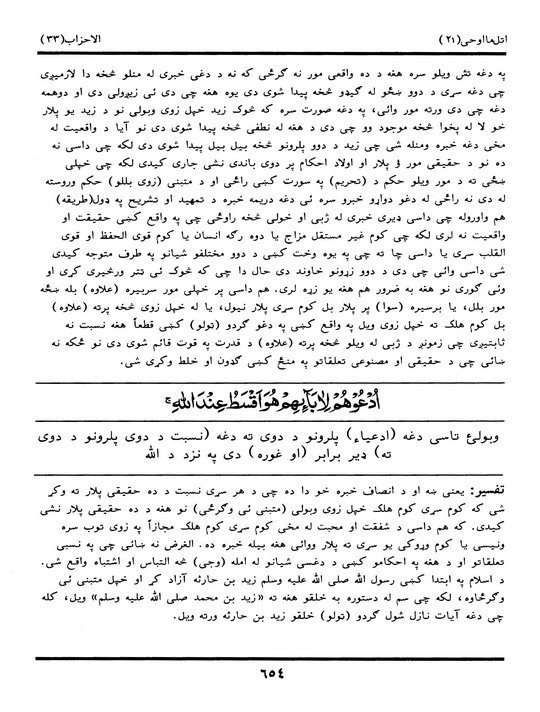 اتل مااوحی(۲۱) الاحزاب(۳۳)
په دغه تش ویلو سره هغه د ده واقعی مور نه گرځی که نه د دغی خبری له منلو څخه دا لازمیږی
چی دغه سړی د دوو ښځو له گیډو څخه پیدا شوی دی یوه هغه چی دی ئی زیږولی دی او دوهمه
هغه چی دی ورته مور وائی، په دغه صورت سره که څوک زید خپل زوی وبولی نو د زید یو پلار
خو لا له پخوا څخه موجود وو چی دی د هغه له نطفی څخه پیدا شوی دی نو آیا د واقعیت له
مخی دغه خبره ومنله شی چی زید د دوو پلرونو څخه بیل بیل پیدا شوی دی لکه چی داسی نه
ده نو د حقیقی مور ؤ پلار او اولاد احکام پر دوی باندی نشی جاری کیدی لکه چی خپلی
ښځی ته د مور ویلو حکم د (تحریم) په صورت کښی راځی او د متبنی (زوی بللو) حکم وروسته
له دی نه راځی له دغو دواړو خبرو سره ئی دغه دریمه خبره د تمهید او تشریح په ډول(طریقه)
هم واوروله چی داسی ډیری خبری له ژبی او خولی څخه راوځی چی په واقع کښی حقیقت او
واقعیت نه لری لکه چی کوم غیر مستقل مزاج یا دوه رګه انسان یا کوم قوی الحفظ او قوی
القلب سړی یا داسی چا ته چی په یوه وخت کښی د دوو مختلفو شیانو په طرف متوجه کیدی
شی داسی وائی چی دی د دوو زړونو خاوند دی حال دا چی که څوک ئی ټټر ورڅیری کړی او
وئی ګوری نو هغه به ضرور هم هغه یو زړه لری. هم داسی پر خپلی مور سربیره (علاوه) بله ښځه
مور بلل، یا برسیره (سوا) پر پلار بل کوم سړی پلار نیول، یا له خپل زوی څخه پرته (علاوه)
بل کوم هلک ته خپل زوی ویل په واقع کښی په دغو ګردو (ټولو) کښی قطعاً هغه نسبت نه
ثابتیږی چی زمونږ د ژبی له ویلو څخه پرته (علاوه) د قدرت په قوت قائم شوی دی نو ځکه نه
ښائی چی د حقیقی او مصنوعی تعلقاتو په منځ کښی ګډون او خلط وکړی شی.
اُدْعُوْهُمْ لِاٰبَآئِهِمْ هُوَ اَقْسَطُ عِنْدَ اللهِ ۚ
وبولئ تاسی دغه (ادعیاء) پلرونو د دوی ته دغه (نسبت د دوی پلرونو د دوی
ته) ډیر برابر (او غوره) دی په نزد د الله
تفسیر: یعنی ښه او د انصاف خبره خو دا ده چی د هر سړی نسبت د ده حقیقی پلار ته وکړ
شی که کوم سړی کوم هلک خپل زوی وبولی (متبنی ئی وګرځی) نو هغه د ده حقیقی پلار نشی
کیدی. که هم داسی د شفقت او محبت له مخی کوم سړی کوم هلک مجازاً په زوی توب سره
ونیسی یا کوم وړوکی یو سړی ته پلار ووائی هغه بیله خبره ده. الغرض نه ښائی چی په نسبی
تعلقاتو او د هغه په احکامو کښی د دغسی شیانو له امله (وجی) څه التباس او اشتباه واقع شی.
د اسلام په ابتدا کښی رسول الله صلی الله علیه وسلم زید بن حارثه آزاد کړ او خپل متبنی ئی
وګرځاوه، لکه چی سم له دستوره به خلقو هغه ته «زید بن محمد صلی الله علیه وسلم» ویل، کله
چی دغه آیات نازل شول ګردو (ټولو) خلقو زید بن حارثه ورته ویل.
٦٥٤